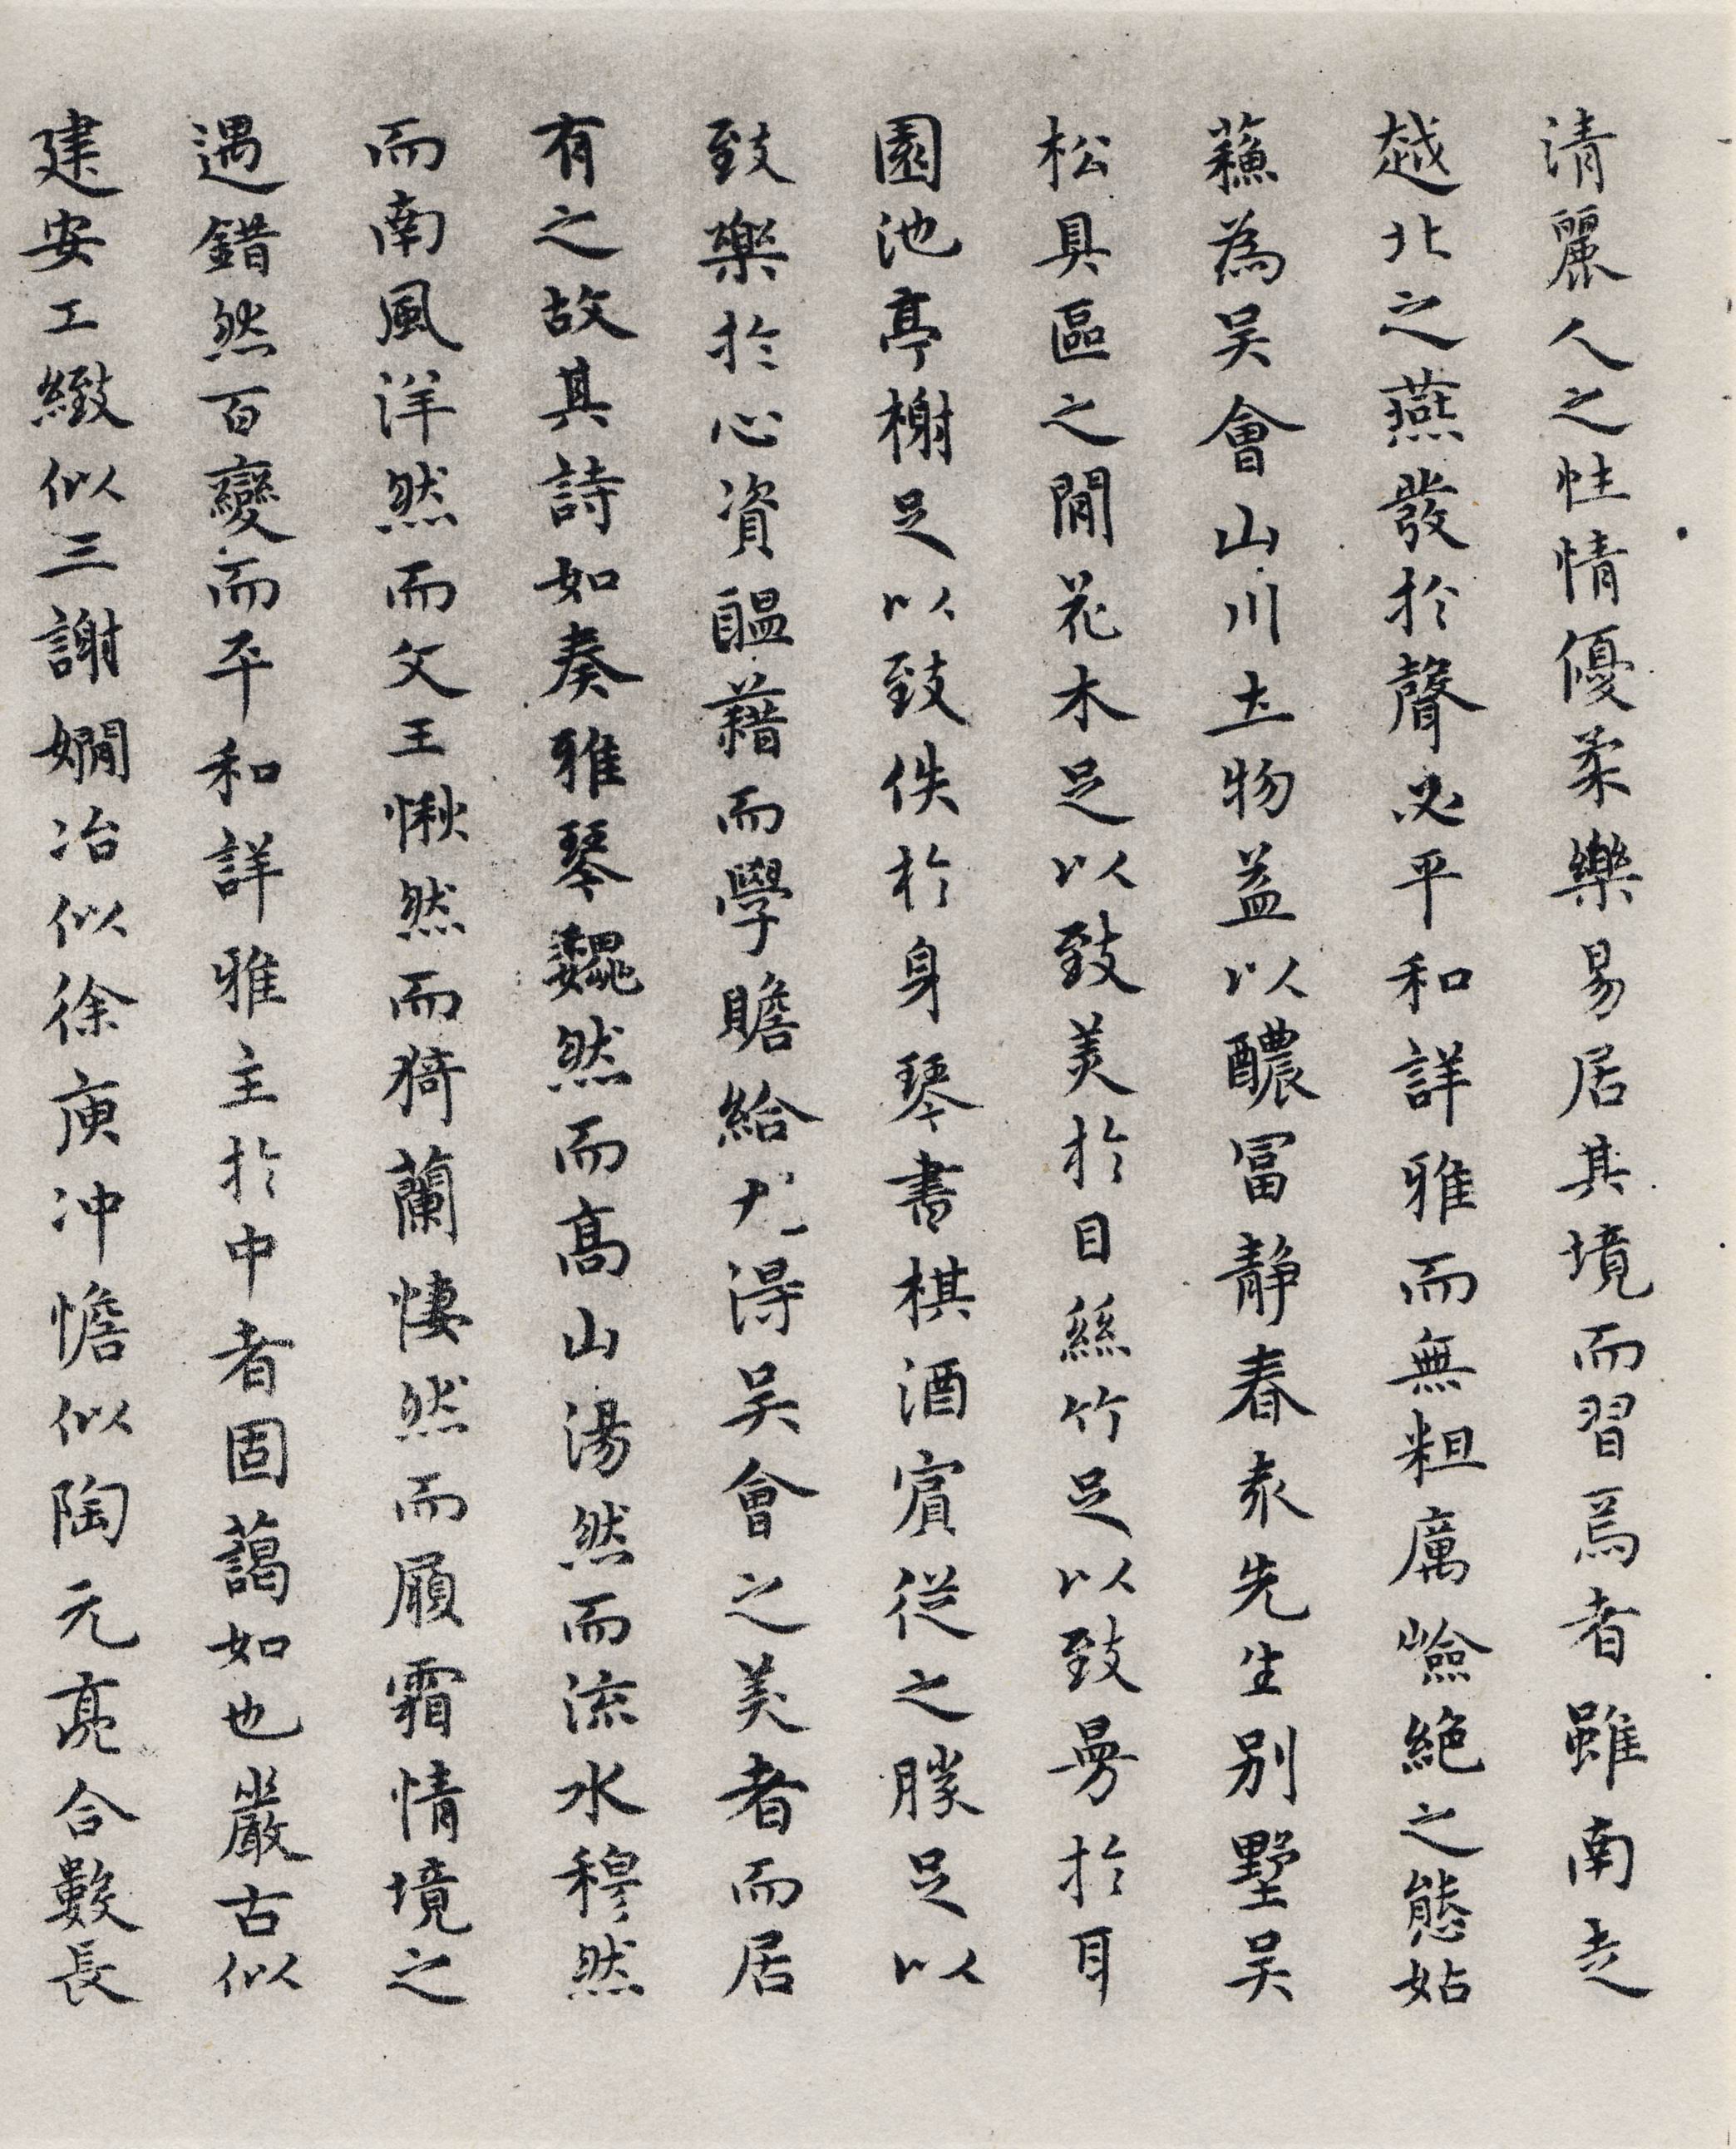 清麗人之性情優柔樂易居其境而習焉者雖南走
越北之燕發於聲必平和詳雅而無粗厲嶮絕之態姑
蘓為吴會山川土物益以醲冨静春袁先生别墅吴
松具區之間花木足以致美於目絲竹足以致曼於耳
園池亭榭足以致佚於身琴書棋酒賓從之勝足以
致樂於心資醖藉而學贍給尤得吴會之美者而居
有之故其詩如奏雅琴巍然而高山湯然而流水穆然
而南風洋然而文王愀然而猗蘭悽然而履霜情境之
遇錯然百變而平和詳雅主於中者固藹如也嚴古似
建安工緻似三謝嫺冶似徐庾冲憺似陶元亮合數長